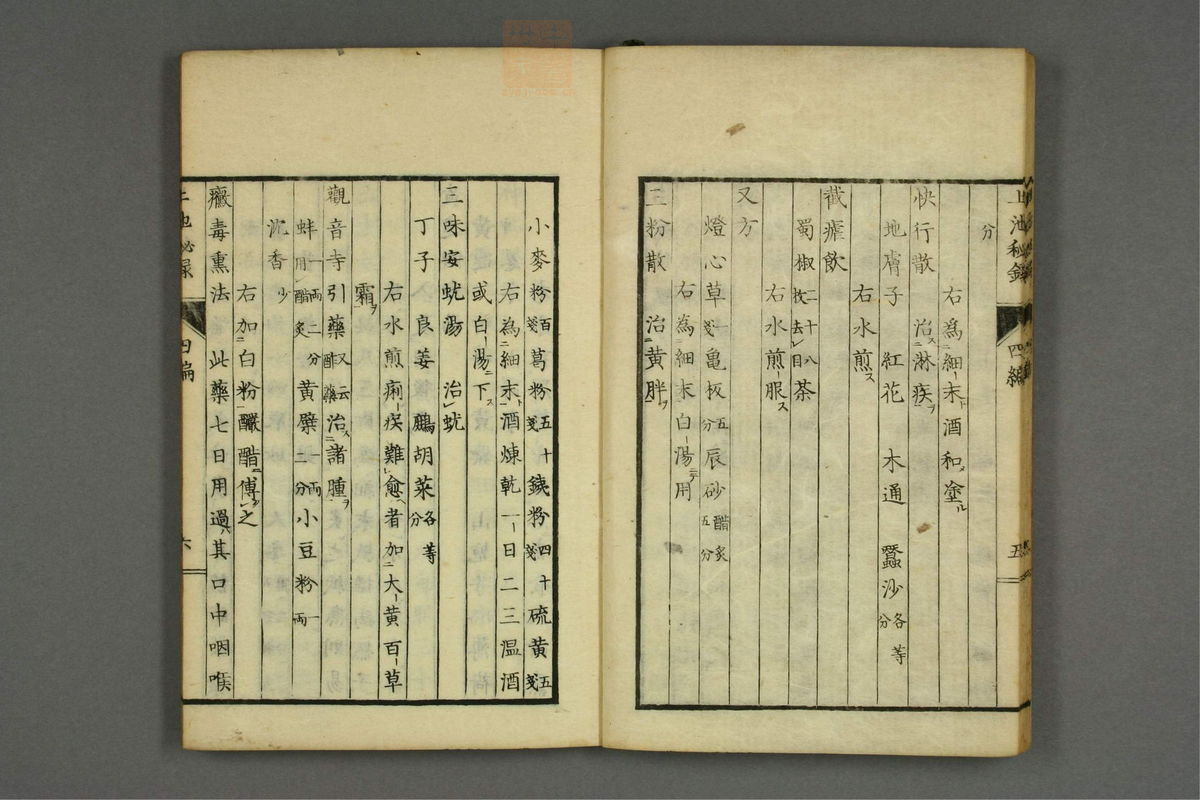 山池秘録 四編 五
分
右為細末酒和塗
快行散 治淋疾
地膚子 紅花 木通 蠶沙各等分
右水煎
截瘧飲
蜀椒二十八枚去目 茶
右水煎服
又方
燈心草一戔 亀板五分 辰砂醋炙五分
右為細末白湯用
三粉散 治黄胖
小麥粉百戔 葛粉五十戔 鉄粉四十戔 硫黄五戔
右為細末酒煉乾一日二三温酒
或白湯下
三味安蚘湯 治蚘
丁子 良姜 鷓胡菜各等分
右水煎痢疾難愈者加大黄百草
霜
觀音寺引藥又云醋藥 治諸腫
蚌両二分用醋炙 黄檗一両二分 小豆粉一両
沈香少
右加白粉釅醋傅之
癥毒熏法 此藥七日用過其口中咽喉
山池必录 四編 六